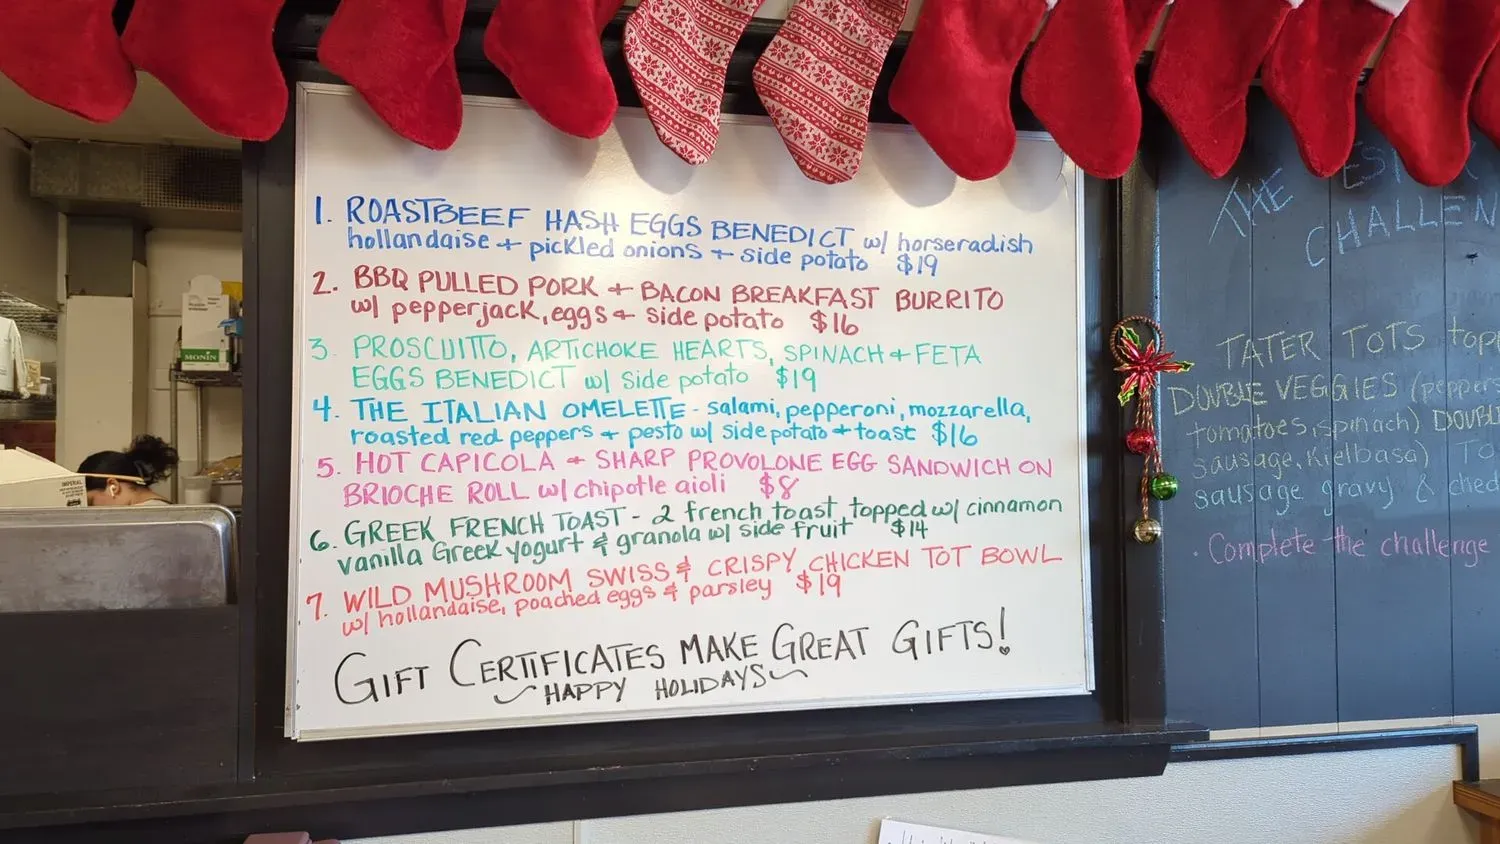 1. ROASTBEEF HASH EGGS BENEDICT w/ horseradish
hollandaise + pickled onions + side potato $19
2. BBQ PULLED PORK + BACON BREAKFAST BURRITO
w/ pepperjack, eggs + side potato $16
3. PROSCUITTO, ARTICHOKE HEARTS, SPINACH + FETA
EGGS BENEDICT w/ side potato $19
4. THE ITALIAN OMELETTE - salami, pepperoni, mozzarella,
roasted red peppers + pesto w/ side potato + toast $16
5. HOT CAPICOLA + SHARP PROVOLONE EGG SANDWICH ON
BRIOCHE ROLL w/ chipotle aioli $8
6. GREEK FRENCH TOAST - 2 french toast topped w/ cinnamon
vanilla Greek yogurt & granola w/ side fruit $14
7. WILD MUSHROOM SWISS & CRISPY CHICKEN TOT BOWL
w/ hollandaise, poached eggs & parsley $19
GIFT CERTIFICATES MAKE GREAT GIFTS!
~ HAPPY HOLIDAYS ~
THE
CHALLEN
TATER TOTS top
DOUBLE VEGGIES (peppers
tomatoes, spinach) DOUBL
sausage, Kielbasa) TO
sausage gravy & ched
· Complete the challenge
MONIN
IMPERIAL